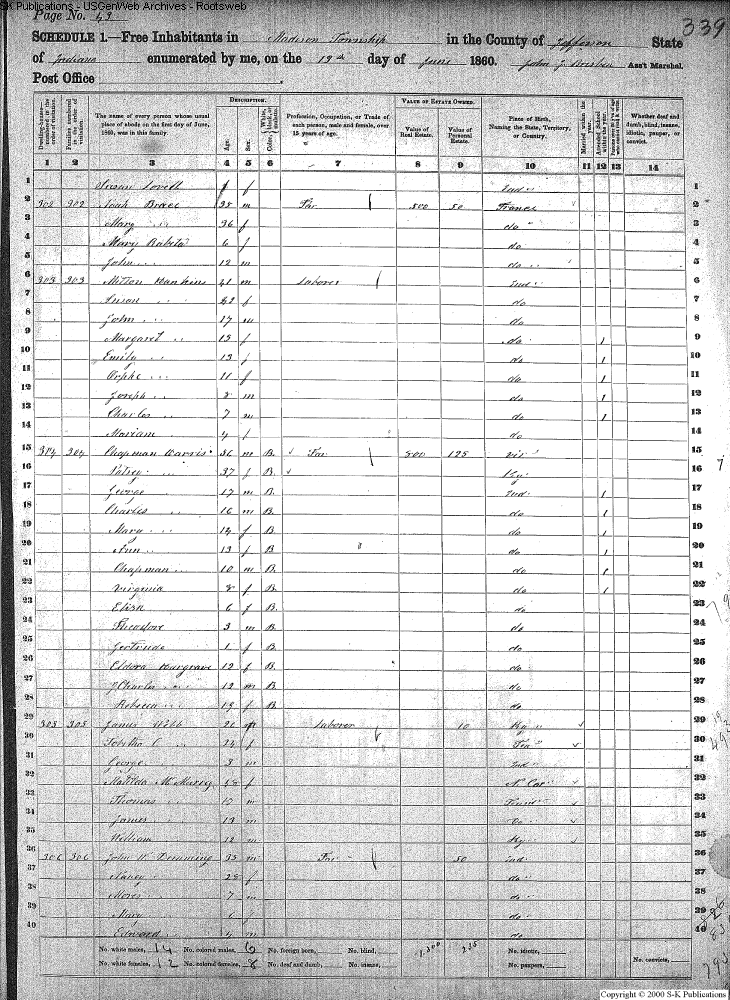 S-K Publications - USGenWeb Archives - Rootsweb
Page No. 43
339
SCHEDULE 1.—Free Inhabitants in Madison Township in the County of Jefferson State
of Indiana enumerated by me, on the 19th day of June 1860. John Ass't Marshal.
Post Office
DESCRIPTION. VALUE OF ESTATE OWNED.
Dwelling-houses—numbered in the order of visitation. Families numbered in the order of visitation. The name of every person whose usual place of abode on the first day of June, 1860, was in this family. Age. Sex. Color, White, black, or mulatto. Profession, Occupation, or Trade of each person, male and female, over 15 years of age. Value of Real Estate. Value of Personal Estate. Place of Birth, Naming the State, Territory, or Country. Married within the year. Attended School within the year. Persons over 20 y'rs of age who cannot read & write. Whether deaf and dumb, blind, insane, idiotic, pauper, or convict.
1 2 3 4 5 6 7 8 9 10 11 12 13 14
1 Susan f Ind 1
2 302 302 Noah 35 m Far 500 50 France 2
3 Mary 36 f do 3
4 Mary 6 f do 4
5 John 12 m do 5
6 303 303 Milton Hankins 41 m Laborer Ind 6
7 Susan 42 f do 7
8 John 17 m do 8
9 Margaret 15 f do 1 9
10 Emily 13 f do 1 10
11 Orphe 11 f do 1 11
12 Joseph 8 m do 1 12
13 Charles 7 m do 1 13
14 Mariam 4 f do 14
15 304 304 Chapman Harris 56 m B. Far 800 125 Vir 15
16 Patsey 37 f B. Ky 16
17 George 17 m B. Ind 1 17
18 Charles 16 m B. do 1 18
19 Mary 14 f B. do 1 19
20 Ann 13 f B. do 1 20
21 Chapman 10 m B. do 1 21
22 Virginia 8 f B. do 1 22
23 Eliza 6 f B. do 23
24 Theadore 3 m B. do 24
25 Gertrude 1 f B. do 25
26 Eldora Hargrave 12 f B. do 26
27 Charles 12 m B. do 27
28 Rebecca 19 f B. do 28
29 305 305 James Webb 21 m Laborer 10 Ky 29
30 24 f Ten 30
31 George 3 m Ind 31
32 Matilda McMurry 48 f N. Car 32
33 Thomas 17 m 33
34 James 19 m Do 34
35 William 12 m Ky 35
36 306 306 John W. Demming 33 m Far 50 Ind 36
37 Nancy 28 f do 37
38 Moses 7 m do 38
39 Mary 6 f do 39
40 Edward 4 m do 40
No. white males, 14 No. colored males, 6 No. foreign born, No. blind, 1,300 235 No. idiotic, No. convicts,
No. white females, 12 No. colored females, 8 No. deaf and dumb, No. insane, No. paupers,
Copyright © 2000 S-K Publications